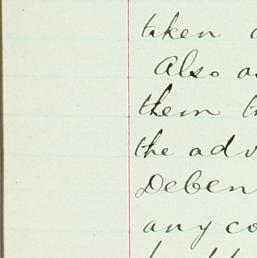 taken
Also
them
the adv
Deben
any co